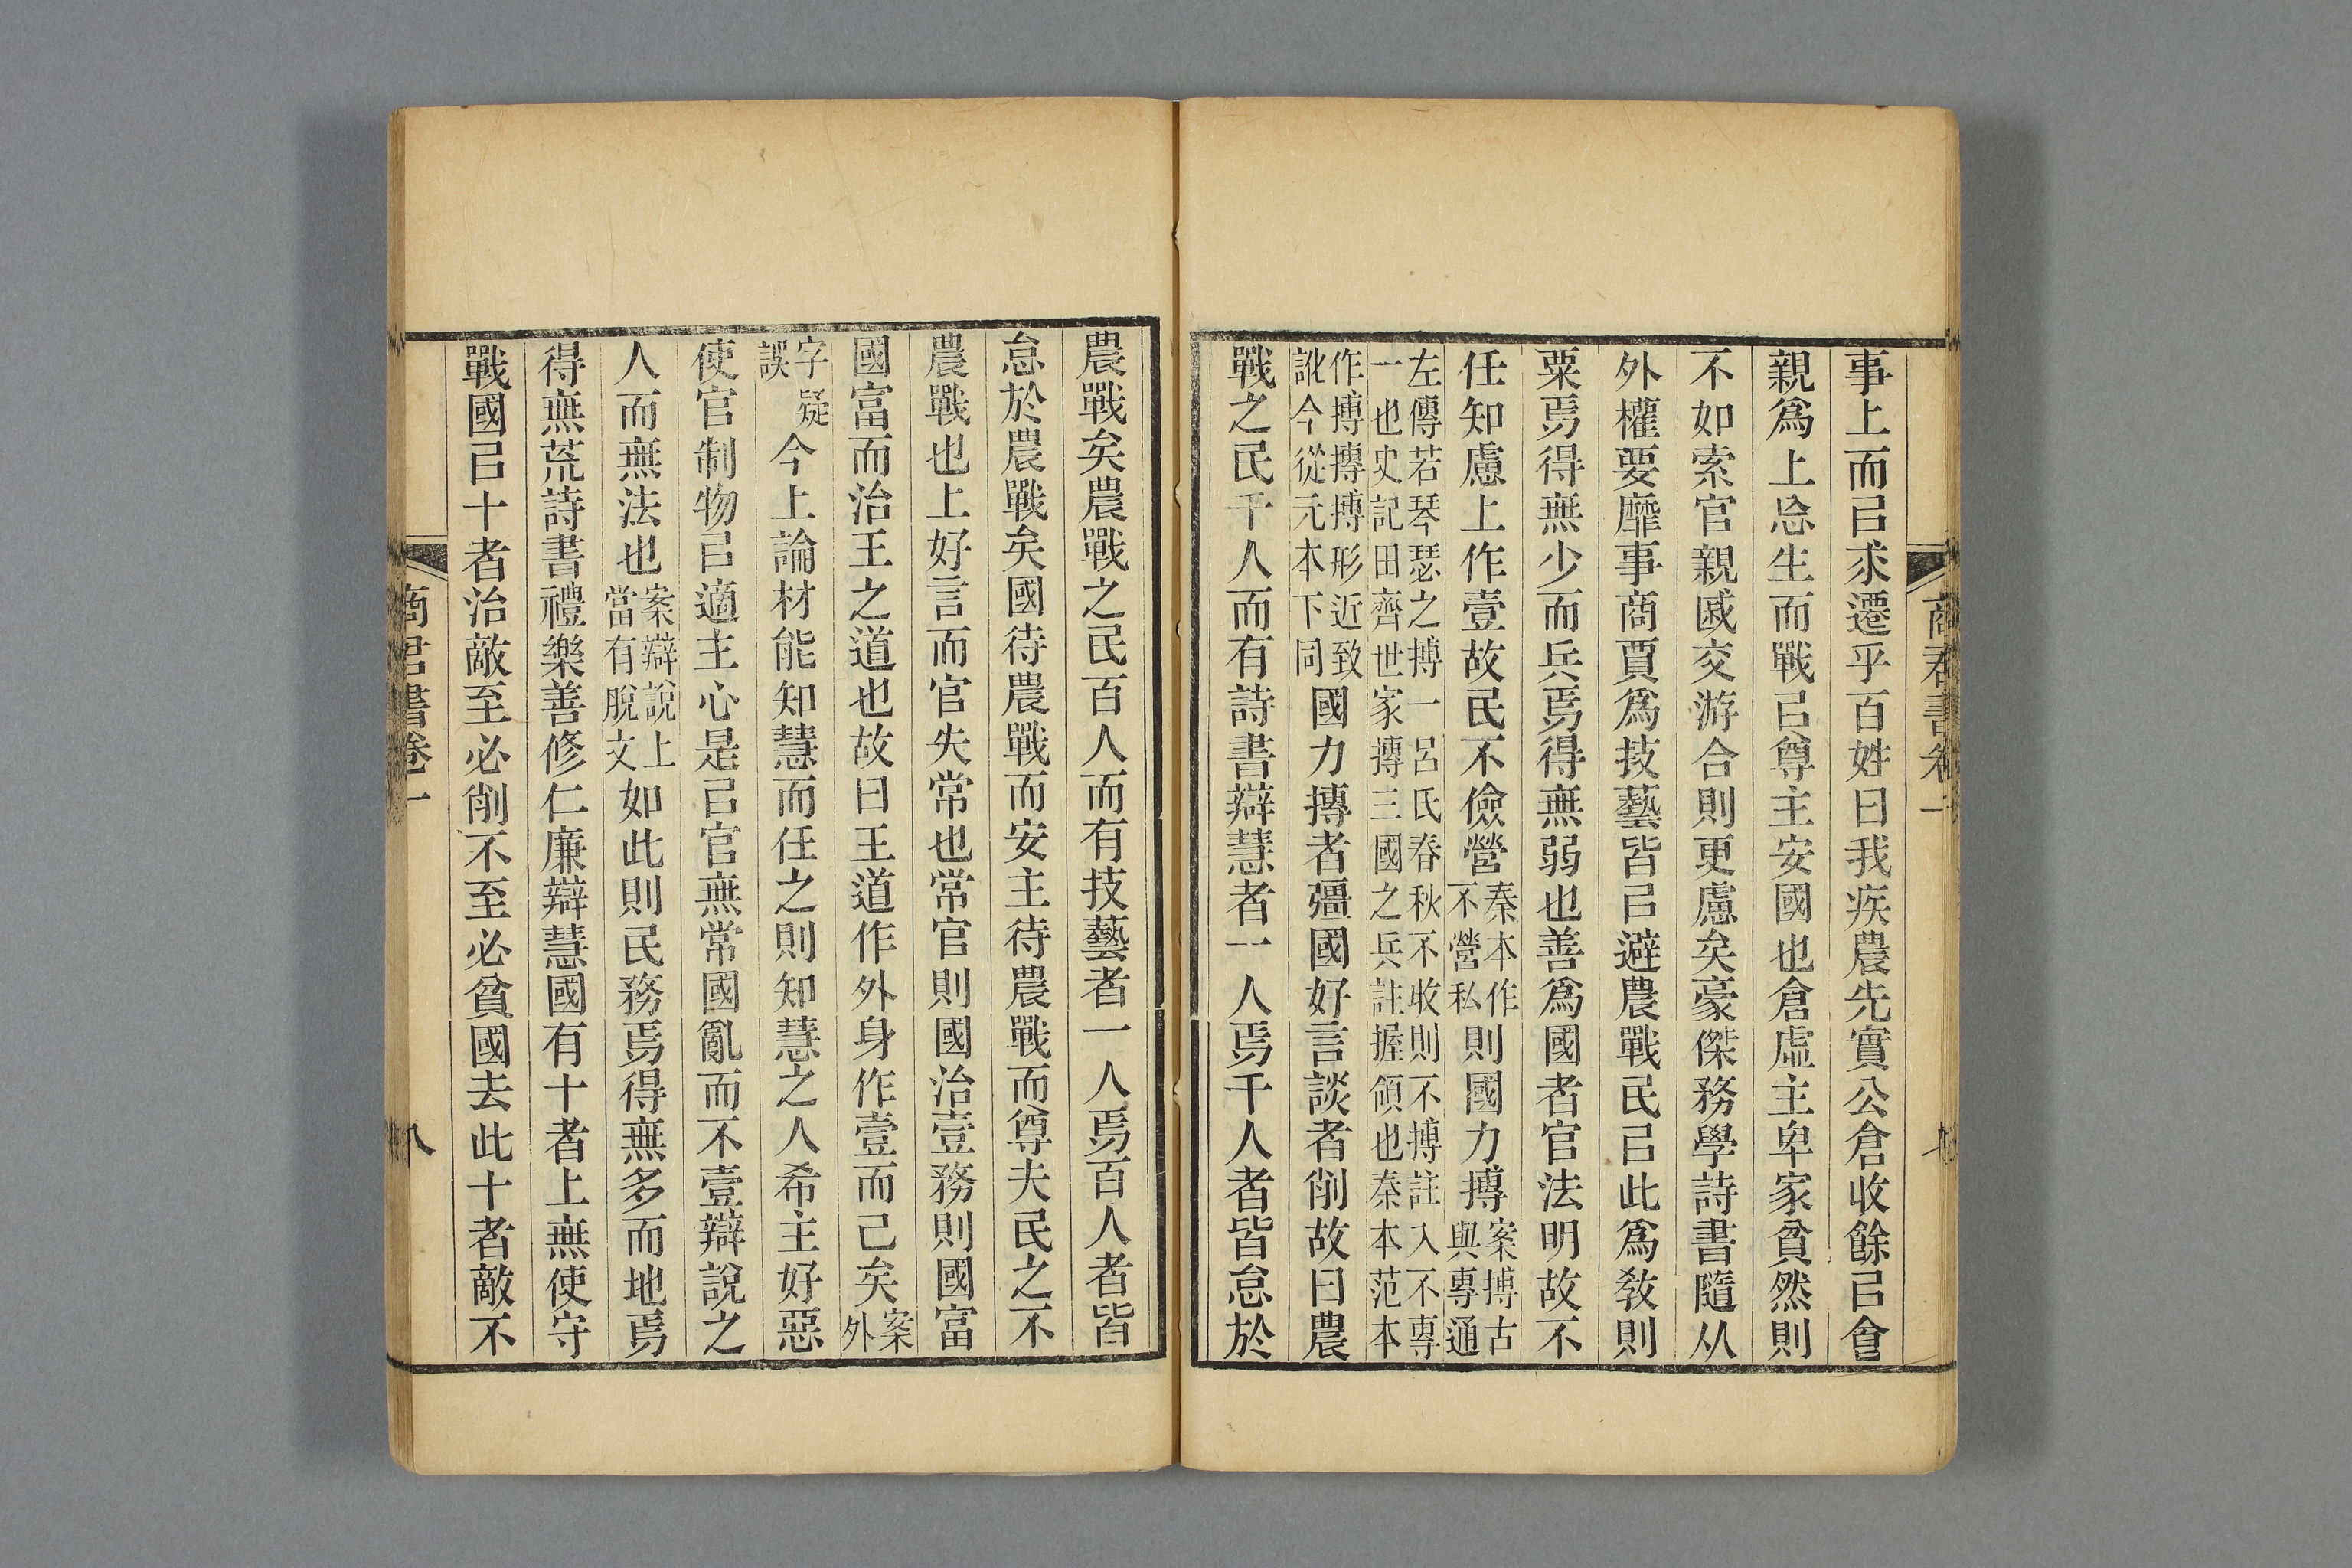 事上而㠯求遷乎百姓曰我疾農先實公倉收餘㠯食
親爲上忘生而戰㠯尊主安國也倉虛主卑家貧然則
不如索官親戚交游合則更慮矣豪傑務學詩書隨从
外權要靡事商賈爲技藝皆㠯避農戰民㠯此爲敎則
粟焉得無少而兵焉得無弱也善爲國者官法明故不
任知慮上作壹故民不儉營秦本作不營私則國力摶案摶古與專通
左傳若琴瑟之摶一呂氏春秋不收則不摶註入不專
一也史記田齊世家摶三國之兵註握領也秦本范本
作搏摶搏形近致訛今從元本下同國力摶者彊國好言談者削故曰農
戰之民千人而有詩書辯慧者一人焉千人者皆怠於
商君書卷一
七
農戰矣農戰之民百人而有技藝者一人焉百人者皆
怠於農戰矣國待農戰而安主待農戰而尊夫民之不
農戰也上好言而官失常也常官則國治壹務則國富
國富而治王之道也故曰王道作外身作壹而已矣案外
字疑誤今上論材能知慧而任之則知慧之人希主好惡
使官制物㠯適主心是㠯官無常國亂而不壹辯說之
人而無法也案辯說上當有脫文如此則民務焉得無多而地焉
得無荒詩書禮樂善修仁廉辯慧國有十者上無使守
戰國㠯十者治敵至必削不至必貧國去此十者敵不
商君書卷一
八